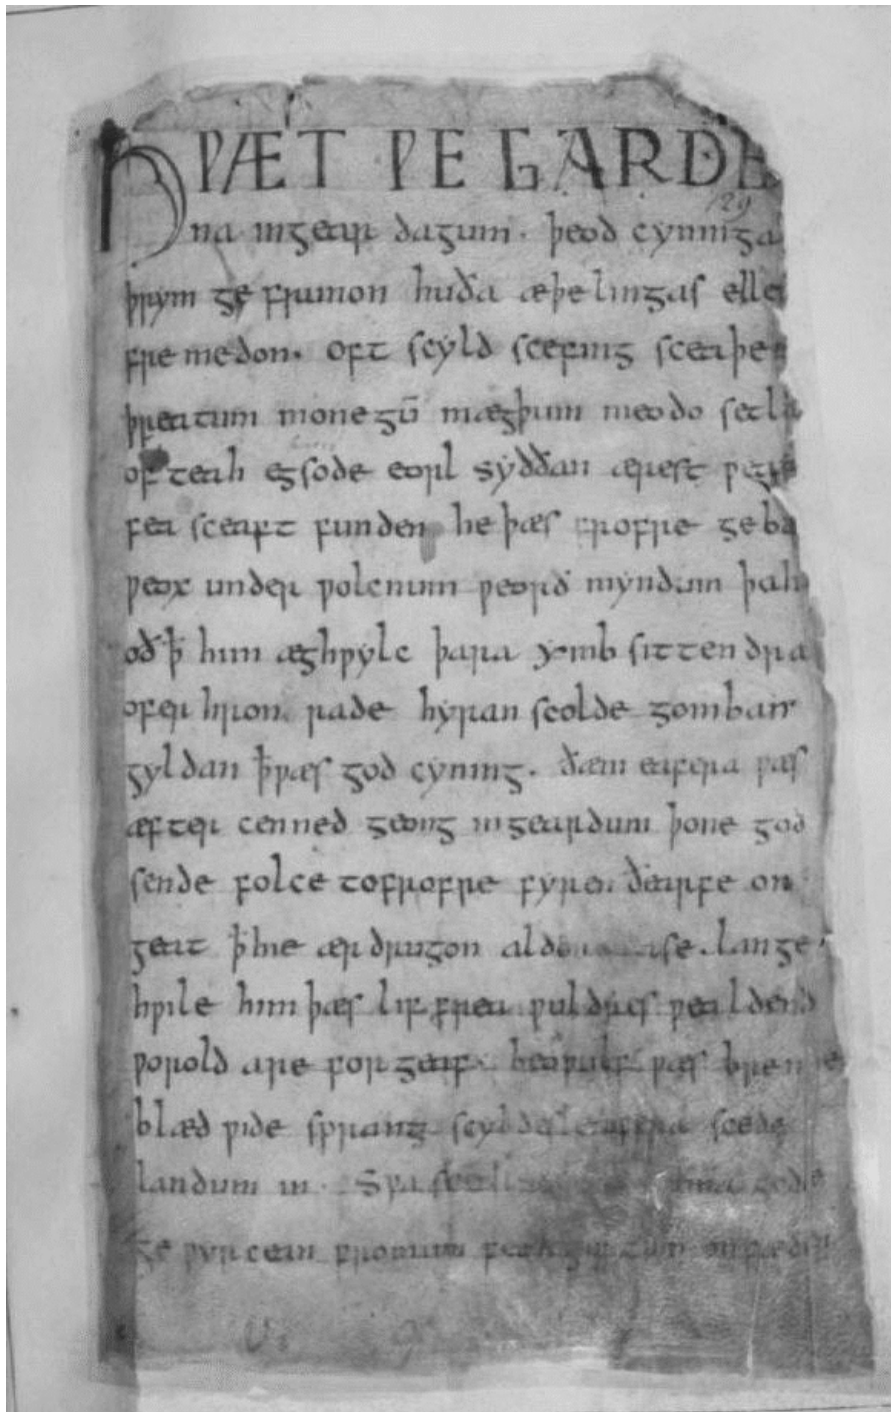 HǷÆT ǷE GARDE
129
na ingear dagum. þeod cyninga
þrym ge frunon huða æþelingas elle
fre medon. oft scyld scefing sceaþe
þreatum monegū mægþum meodo setla
of teah egsode eorl syððan ærest ƿea
fea sceaft funden he þæs frofre geba
ƿeox under ƿolcnum ƿeorð myndum þah
oð þ̄ him æghƿylc þara ymb sittendra
ofer hron rade hyran scolde gomban
gyldan þ̄ ƿæs god cyning. ðæm eafera ƿæs
æfter cenned geong ingeardum þone god
sende folce tofrofre fyren ðearfe on
geat þ̄ hie ær drugon aldo ase. lange
hƿile him þæs liffrea ƿuldres ƿealdend
ƿorold are forgeaf. beoƿulf ƿæs breme
blæd ƿide sprang scyldes eafera scede
landum in. Sƿa sceal gode
ge ƿyrcean fromum feoh giftum on fæder